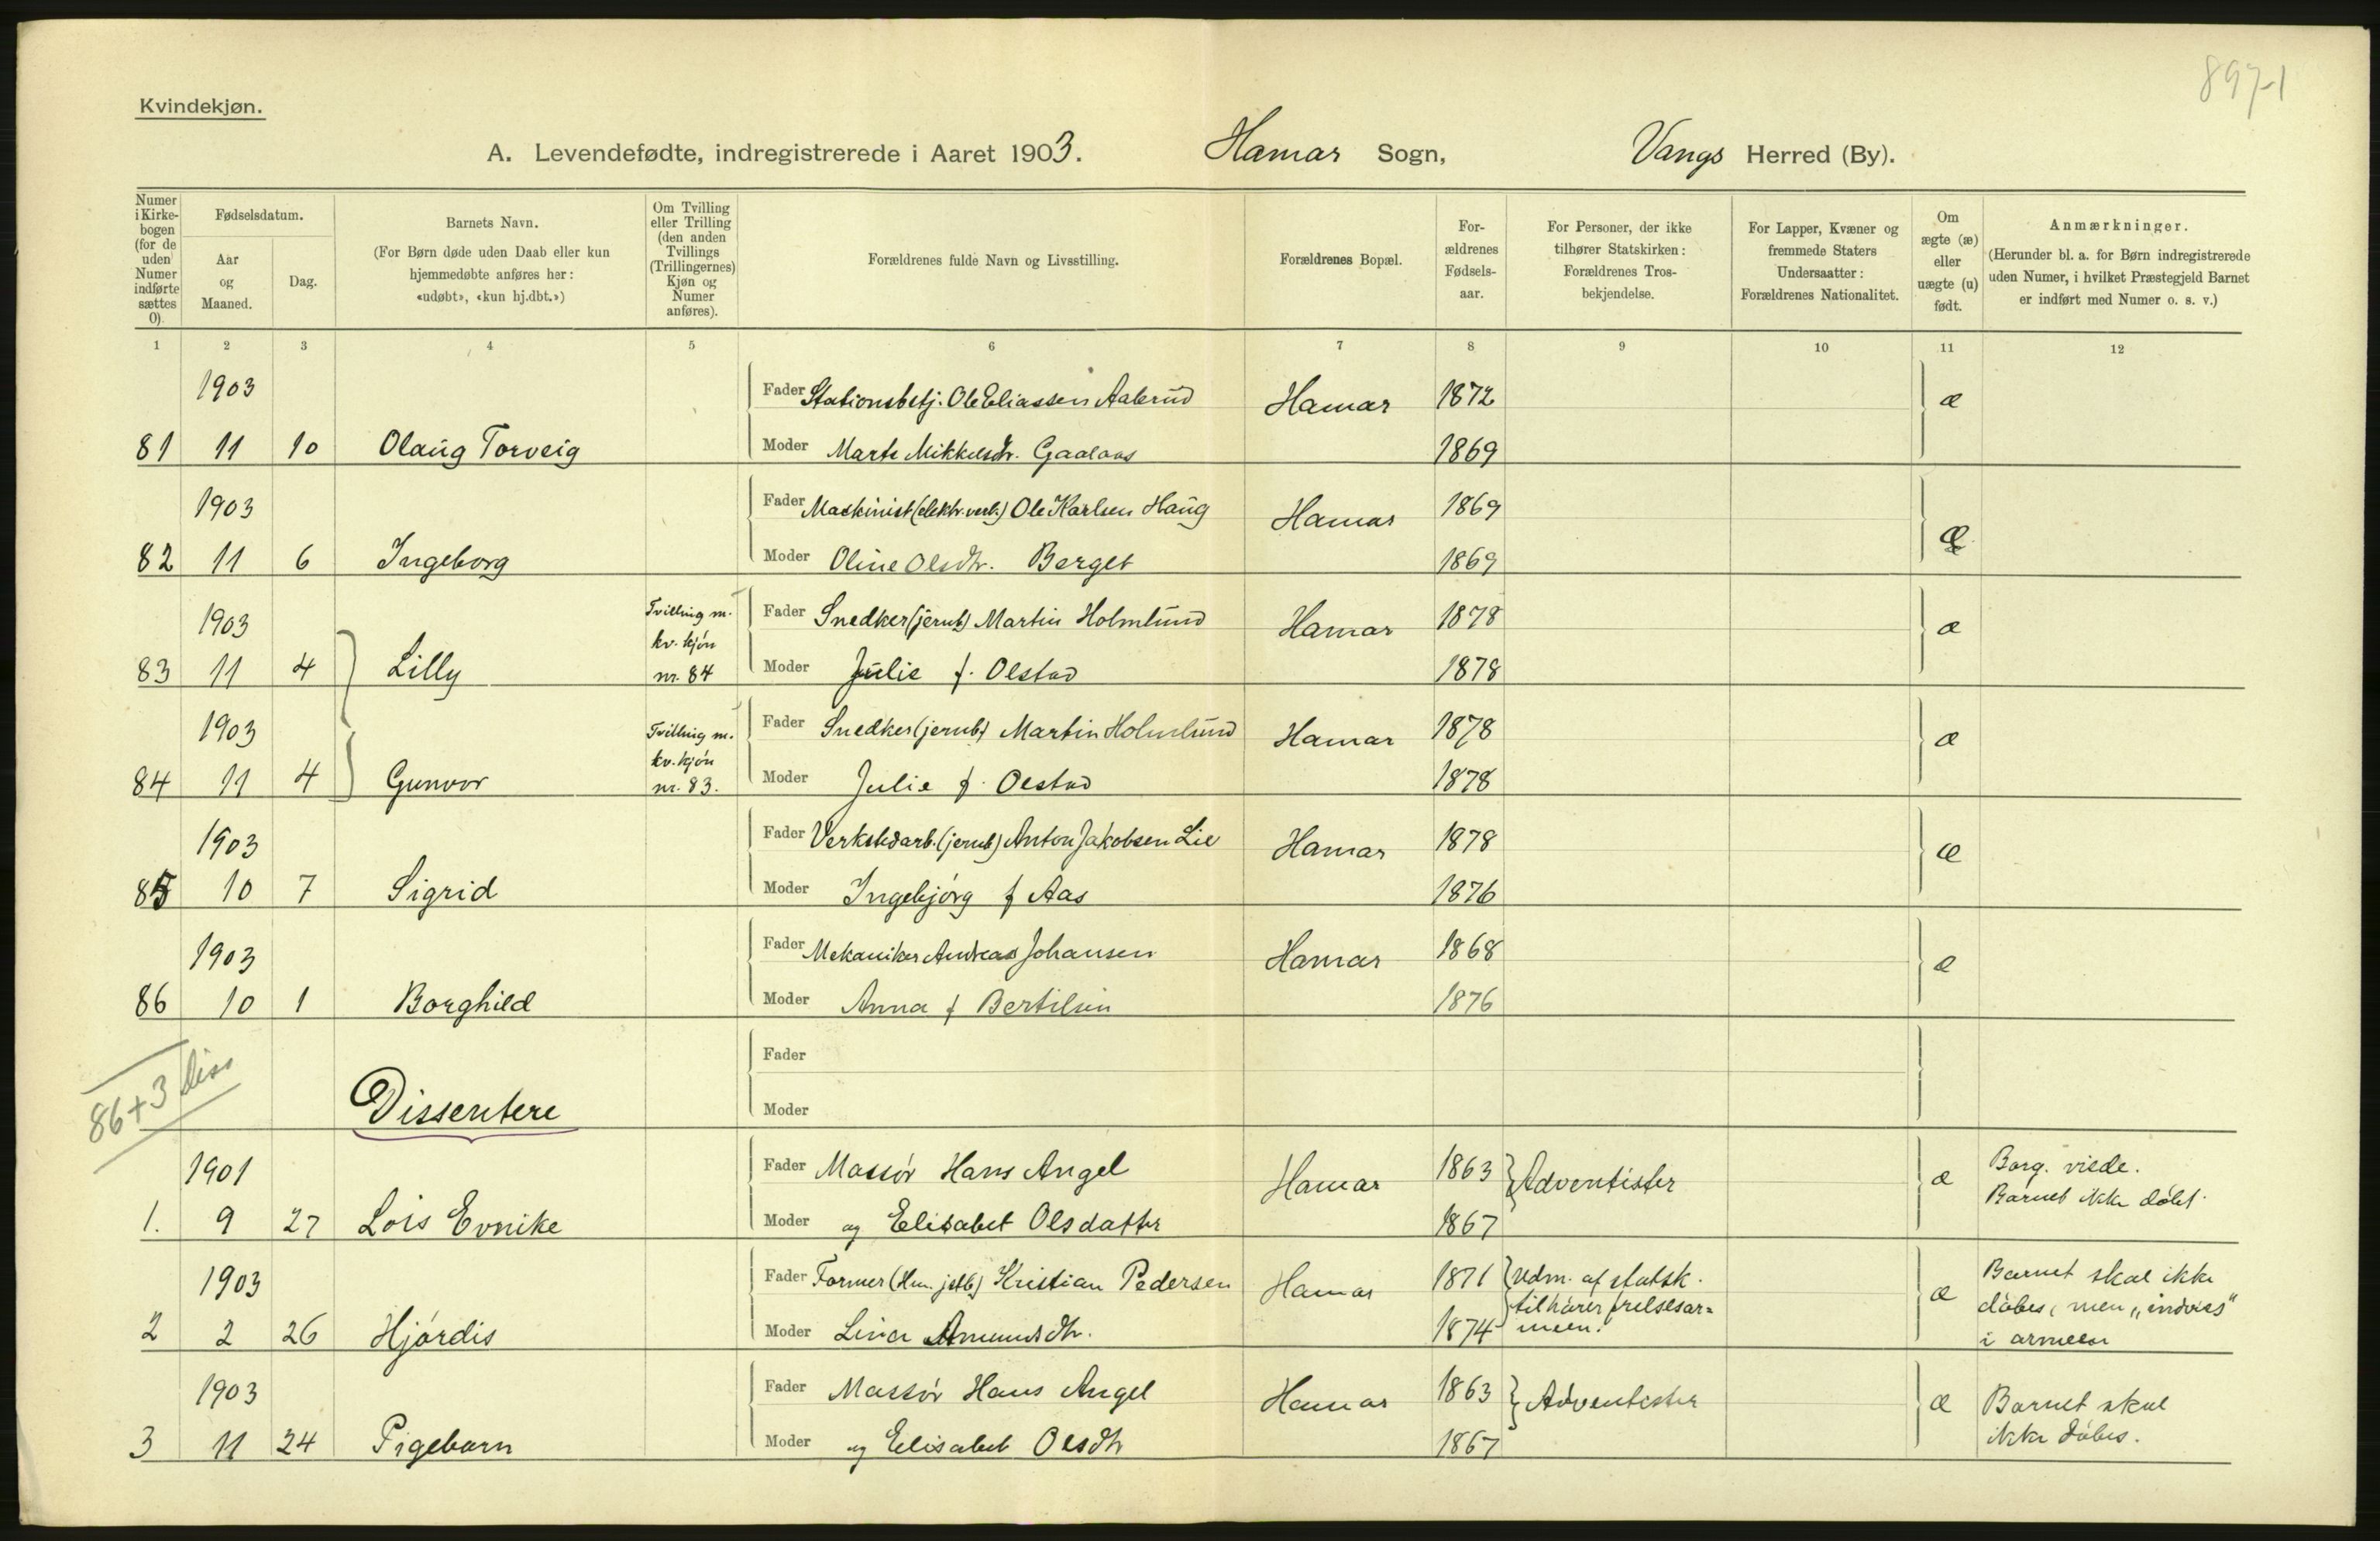 897-1
Kvindekjøn.
A. Levendefødte, indregistrerede i Aaret 1903. Hamar Sogn, Vangs Herred (By).
Numer i Kirke-bogen (for de uden Numer indførte sættes 0).
Fødselsdatum.
Aar og Maaned.
Dag.
Barnets Navn.
(For Børn døde uden Daab eller kun
hjemmedøbte anføres her:
«udøbt», «kun hj.dbt.»)
Om Tvilling eller Trilling (den anden Tvillings (Trillingernes) Kjøn og Numer anføres).
Forældrenes fulde Navn og Livsstilling.
Forældrenes Bopæl.
For-ældrenes Fødsels-aar.
For Personer, der ikke tilhører Statskirken: Forældrenes Tros-bekjendelse.
For Lapper, Kvæner og fremmede Staters Undersaatter: Forældrenes Nationalitet.
Om ægte (æ) eller uægte (u) født.
Anmærkninger.
(Herunder bl. a. for Børn indregistrerede
uden Numer, i hvilket Præstegjeld Barnet
er indført med Numer o. s. v.)
1 2 3 4 5 6 7 8 9 10 11 12
1903 Fader Stationsbetj. Ole Eliassen Aaberud Hamar 1872 æ
81 11 10 Olaug Torveig Moder Marte Mikkelsdtr. Gaalaas 1869
1903 Fader Maskinist (elektr. verk.) Ole Karlsen Haug Hamar 1869 æ
82 11 6 Ingeborg Moder Oline Olsdtr. Berget 1869
1903 Tvilling m. kv. kjøn nr. 84 Fader Snedker (jernb.) Martin Holmlund Hamar 1878 æ
83 11 4 Lilly Moder Julie f. Olstad 1878
1903 Tvilling m. kv. kjøn nr. 83. Fader Snedker (jernb.) Martin Holmlund Hamar 1878 æ
84 11 4 Gunvor Moder Julie f. Olstad 1878
1903 Fader Verkstedarb. (jernb) Anton Jakobsen Lie Hamar 1878 æ
85 10 7 Sigrid Moder Ingebjørg f Aas 1876
1903 Fader Mekaniker Andreas Johansen Hamar 1868 æ
86 10 1 Borghild Moder Anna f Bertilsen 1876
86+3 diss
Fader
Dissentere Moder
1901 Fader Massør Hans Angel Hamar 1863 Adventister æ Borg. viede.
1. 9 27 Lois Evnike Moder og Elisabet Olsdatter 1867 Barnet ikke døbt.
1903 Fader Former (Ham. jstb.) Kristian Pedersen Hamar 1871 udm. af statsk. æ Barnet skal ikke
tilhører frelsesar= døbes, men „indvies"
2 2 26 Hjørdis Moder Lina Amundsdtr. 1874 meen. i armeen
1903 Fader Massør Hans Angel Hamar 1863 Adventister æ Barnet skal
3 11 24 Pigebarn Moder og Elisabet Olsdtr 1867 ikke døbes.